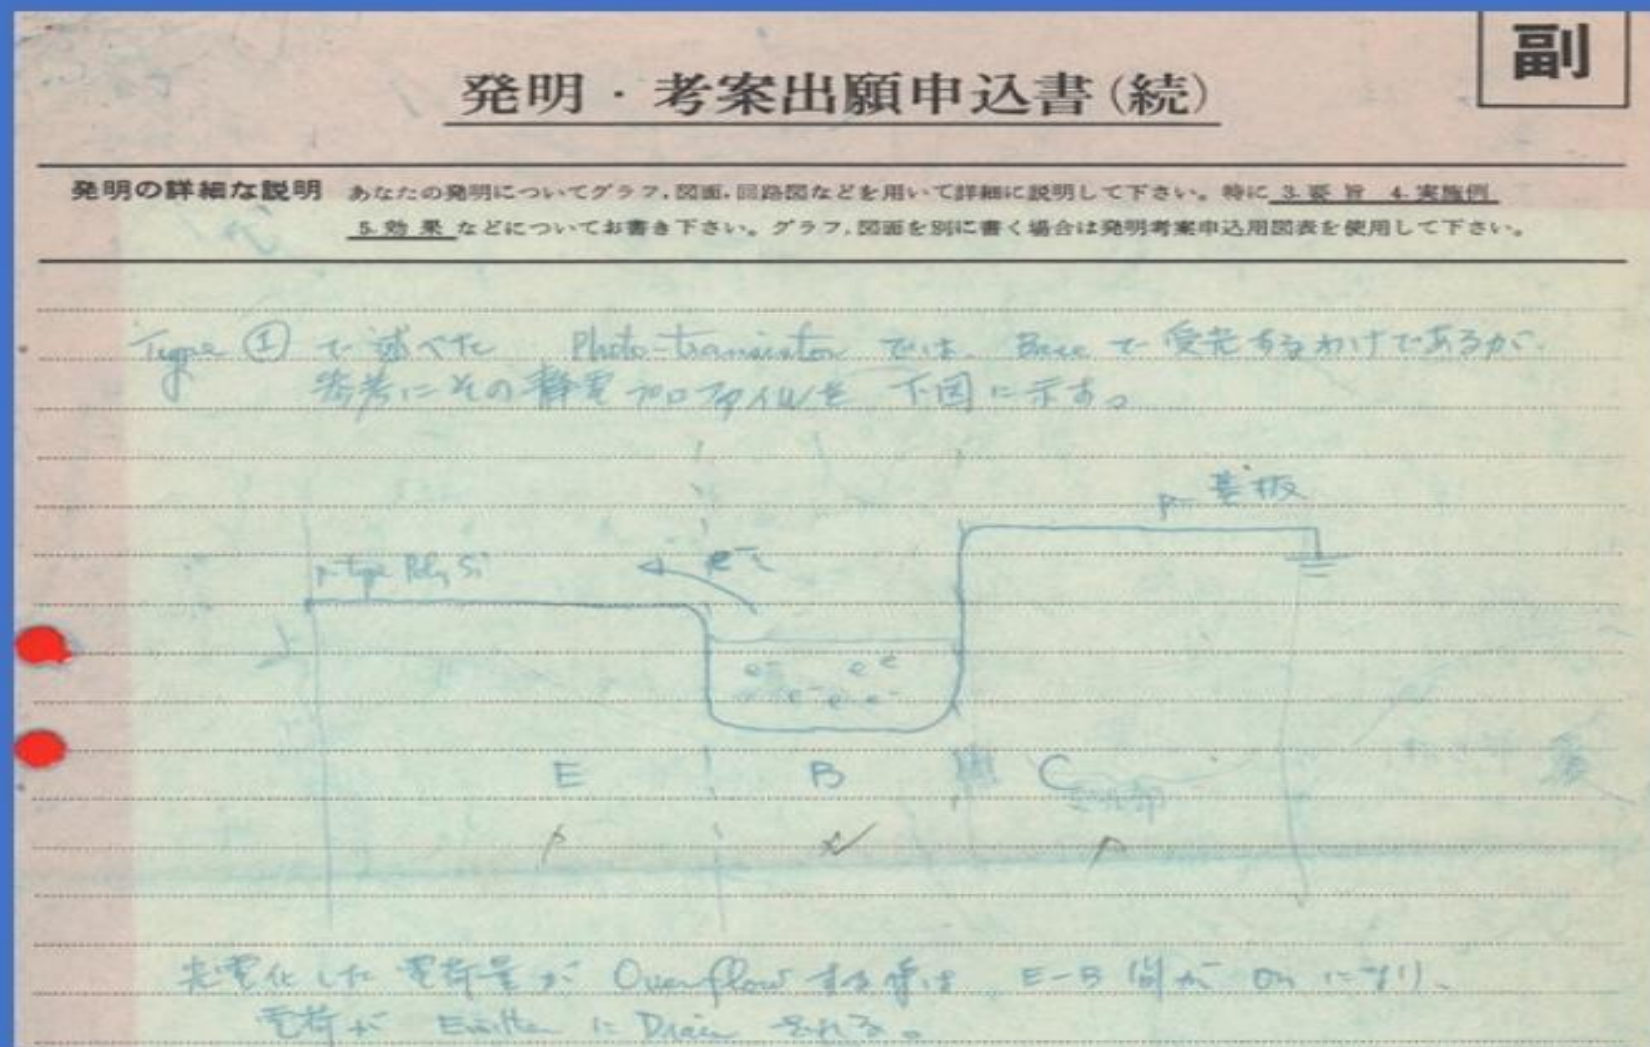 副
発明・考案出願申込書(続)
発明の詳細な説明 あなたの発明についてグラフ,図面,回路図などを用いて詳細に説明して下さい。特に 3.要旨 4.実施例
5.効果 などについてお書き下さい。グラフ,図面を別に書く場合は発明考案申込用図表を使用して下さい。
Type ① で述べた Photo-transistor では、Base で受光するわけであるが、
参考にその静電プロファイルを下図に示す。
p-基板
p-type Poly Si
e⁻
e⁻ e⁻ e e e⁻
E B C
光電化した電荷量が Overflow する時は E-B 間が On になり、
電荷が Emitter に Drain される。